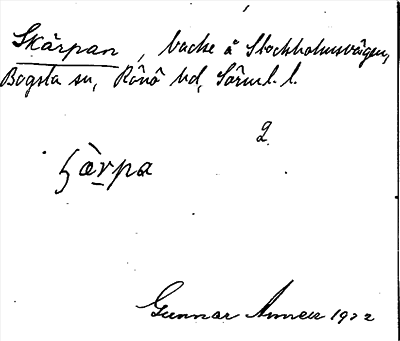 Skärpan, backe å Stockholmsvägen,
Bogsta sn, Rönö hd, Sörml. l.
2.
ʃä̀rpa
Gunnar Annell 1922